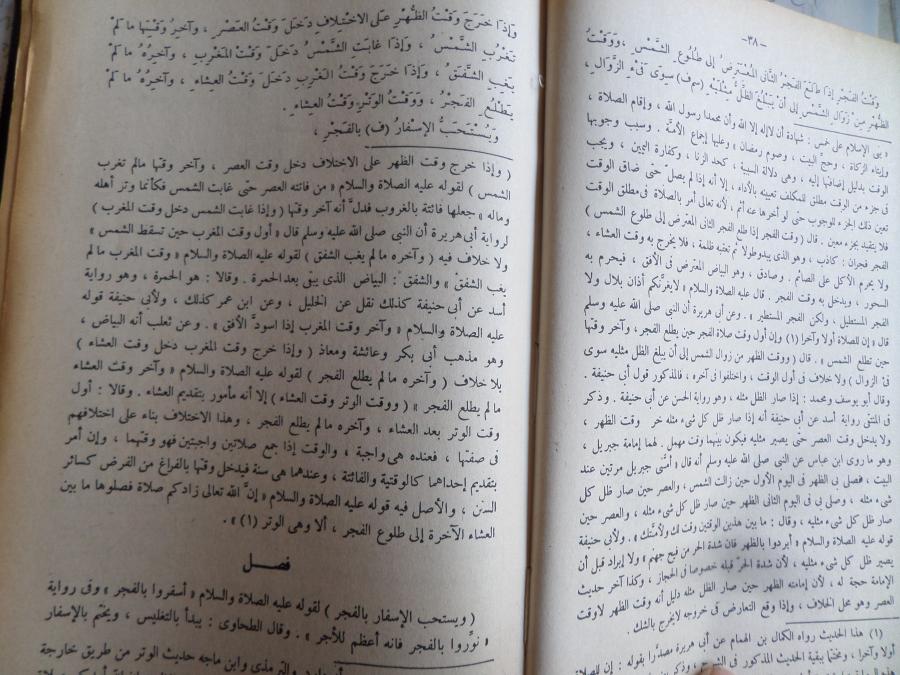 — ٣٨ —
وَقْتُ الفَجْرِ إِذَا طَلَعَ الفَجْرُ الثَّانِى المُعْتَرِضُ إِلى طُلُوعِ الشَّمْسِ ، وَوَقْتُ
الظُّهْرِ مِنْ زَوَالِ الشَّمْسِ إِلى أَنْ يَبْلُغَ الظِّلُّ مِثْلَيْهِ (سم ف) سِوَى فَىْءِ الزَّوَالِ ،
« بنى الإسلام على خمس : شهادة أن لا إله إلا الله وأن محمدا رسول الله ، وإقام الصلاة ،
وإيتاء الزكاة ، وحج البيت ، وصوم رمضان » وعليها إجماع الأمة . وسبب وجوبها
الوقت بدليل إضافتها إليه ، وهى دلالة السببية ، كحد الزنا ، وكفارة اليمين ، ويجب
فى جزء من الوقت مطلق للمكلف تعيينه بالأداء ، إلا أنه إذا لم يصل حتى ضاق الوقت
تعين ذلك الجزء للوجوب حتى لو أخرها عنه أثم ، لأنه تعالى أمر بالصلاة فى مطلق الوقت
فلا يتقيد بجزء معين . قال (وقت الفجر إذا طلع الفجر الثانى المعترض إلى طلوع الشمس)
الفجر فجران : كاذب ، وهو الذى يبدو طولا ثم تعقبه ظلمة ، فلا يخرج به وقت العشاء ،
ولا يحرم الأكل على الصائم . وصادق ، وهو البياض المعترض فى الأفق ، فيحرم به
السحور ، ويدخل به وقت الفجر . قال عليه الصلاة والسلام « لا يغرنكم أذان بلال ولا
الفجر المستطيل ، ولكن الفجر المستطير » . وعن أبى هريرة أن النبى صلى الله عليه وسلم
قال « إن للصلاة أولا وآخرا (١) وإن أول وقت صلاة الفجر حين يطلع الفجر ، وآخر وقتها
حين تطلع الشمس » . قال ( ووقت الظهر من زوال الشمس إلى أن يبلغ الظل مثليه سوى
فىء الزوال ) ولا خلاف فى أول الوقت ، واختلفوا فى آخره ، فالمذكور قول أبى حنيفة .
وقال أبو يوسف ومحمد : إذا صار الظل مثله ، وهو رواية الحسن عن أبى حنيفة . وذكر
فى المنتقى رواية أسد عن أبى حنيفة أنه إذا صار ظل كل شىء مثله خرج وقت الظهر ،
ولا يدخل وقت العصر حتى يصير مثليه فيكون بينهما وقت مهمل . لهما إمامة جبريل ،
وهو ما روى ابن عباس عن النبى صلى الله عليه وسلم أنه قال « أمنى جبريل مرتين عند
البيت ، فصلى بى الظهر فى اليوم الأول حين زالت الشمس ، والعصر حين صار ظل كل
شىء مثله ، وصلى بى فى اليوم الثانى الظهر حين صار ظل كل شىء مثله ، والعصر حين
صار ظل كل شىء مثليه ، وقال : ما بين هذين الوقتين وقت لك ولأمتك » . ولأبى حنيفة
قوله عليه الصلاة والسلام « أبردوا بالظهر فان شدة الحر من فيح جهنم » ولا إبراد قبل أن
يصير ظل كل شىء مثليه ، لأن شدة الحر قبله خصوصا فى الحجاز ، وكذا آخر حديث
الإمامة حجة له ، لأن إمامته الظهر حين صار الظل مثله دليل أنه وقت الظهر لا وقت
العصر وهو محل الخلاف ، وإذا وقع التعارض فى خروجه لا يخرج بالشك .
(١) هذا الحديث رواه الكمال بن الهمام عن أبى هريرة مصدرا بقوله : إن للصلاة
أولا وآخرا ، ومختتما ببقية الحديث المذكور فى الشرح ، وذكر
وَإذَا خَرَجَ وَقْتُ الظُّهْرِ عَلَى الاخْتِلافِ دَخَلَ وَقْتُ العَصْرِ ، وَآخِرُ وَقْتِهَا مَا لَمْ
تَغْرُبِ الشَّمْسُ ، وَإِذَا غَابَتِ الشَّمْسُ دَخَلَ وَقْتُ المَغْرِبِ ، وَآخِرُهُ مَا لَمْ
يَغِبِ الشَّفَقُ ، وَإِذَا خَرَجَ وَقْتُ المَغْرِبِ دَخَلَ وَقْتُ العِشَاءِ ، وَآخِرُهُ مَا لَمْ
يَطْلُعِ الفَجْرُ ، وَوَقْتُ الوِتْرِ وَقْتُ العِشَاءِ .
وَيُسْتَحَبُّ الإِسْفَارُ (ف) بِالفَجْرِ ،
( وإذا خرج وقت الظهر على الاختلاف دخل وقت العصر ، وآخر وقتها مالم تغرب
الشمس ) لقوله عليه الصلاة والسلام « من فاتته العصر حتى غابت الشمس فكأنما وتر أهله
وماله » جعلها فائتة بالغروب فدل أنه آخر وقتها (وإذا غابت الشمس دخل وقت المغرب )
لرواية أبى هريرة أن النبى صلى الله عليه وسلم قال « أول وقت المغرب حين تسقط الشمس »
ولا خلاف فيه ( وآخره مالم يغب الشفق ) لقوله عليه الصلاة والسلام « وقت المغرب مالم
يغب الشفق » والشفق : البياض الذى يبقى بعد الحمرة . وقالا : هو الحمرة ، وهو رواية
أسد عن أبى حنيفة كذلك نقل عن الخليل ، وعن ابن عمر كذلك ، ولأبى حنيفة قوله
عليه الصلاة والسلام « وآخر وقت المغرب إذا اسود الأفق » . وعن ثعلب أنه البياض ،
وهو مذهب أبى بكر وعائشة ومعاذ ( وإذا خرج وقت المغرب دخل وقت العشاء )
بلا خلاف ( وآخره مالم يطلع الفجر ) لقوله عليه الصلاة والسلام « وآخر وقت العشاء
مالم يطلع الفجر » ( ووقت الوتر وقت العشاء ) إلا أنه مأمور بتقديم العشاء . وقالا : أول
وقت الوتر بعد العشاء ، وآخره مالم يطلع الفجر ، وهذا الاختلاف بناء على اختلافهم
فى صفتها ، فعنده هى واجبة ، والوقت إذا جمع صلاتين واجبتين فهو وقتهما ، وإن أمر
بتقديم إحداهما كالوقتية والفائتة ، وعندهما هى سنة فيدخل وقتها بالفراغ من الفرض كسائر
السنن ، والأصل فيه قوله عليه الصلاة والسلام « إن الله تعالى زادكم صلاة فصلوها ما بين
العشاء الآخرة إلى طلوع الفجر ، ألا وهى الوتر (١) » .
فصل
( ويستحب الإسفار بالفجر ) لقوله عليه الصلاة والسلام « أسفروا بالفجر » وفى رواية
« نوروا بالفجر فانه أعظم للأجر » . وقال الطحاوى : يبدأ بالتغليس ، ويختم بالإسفار
والترمذى وابن ماجه حديث الوتر من طريق خارجة